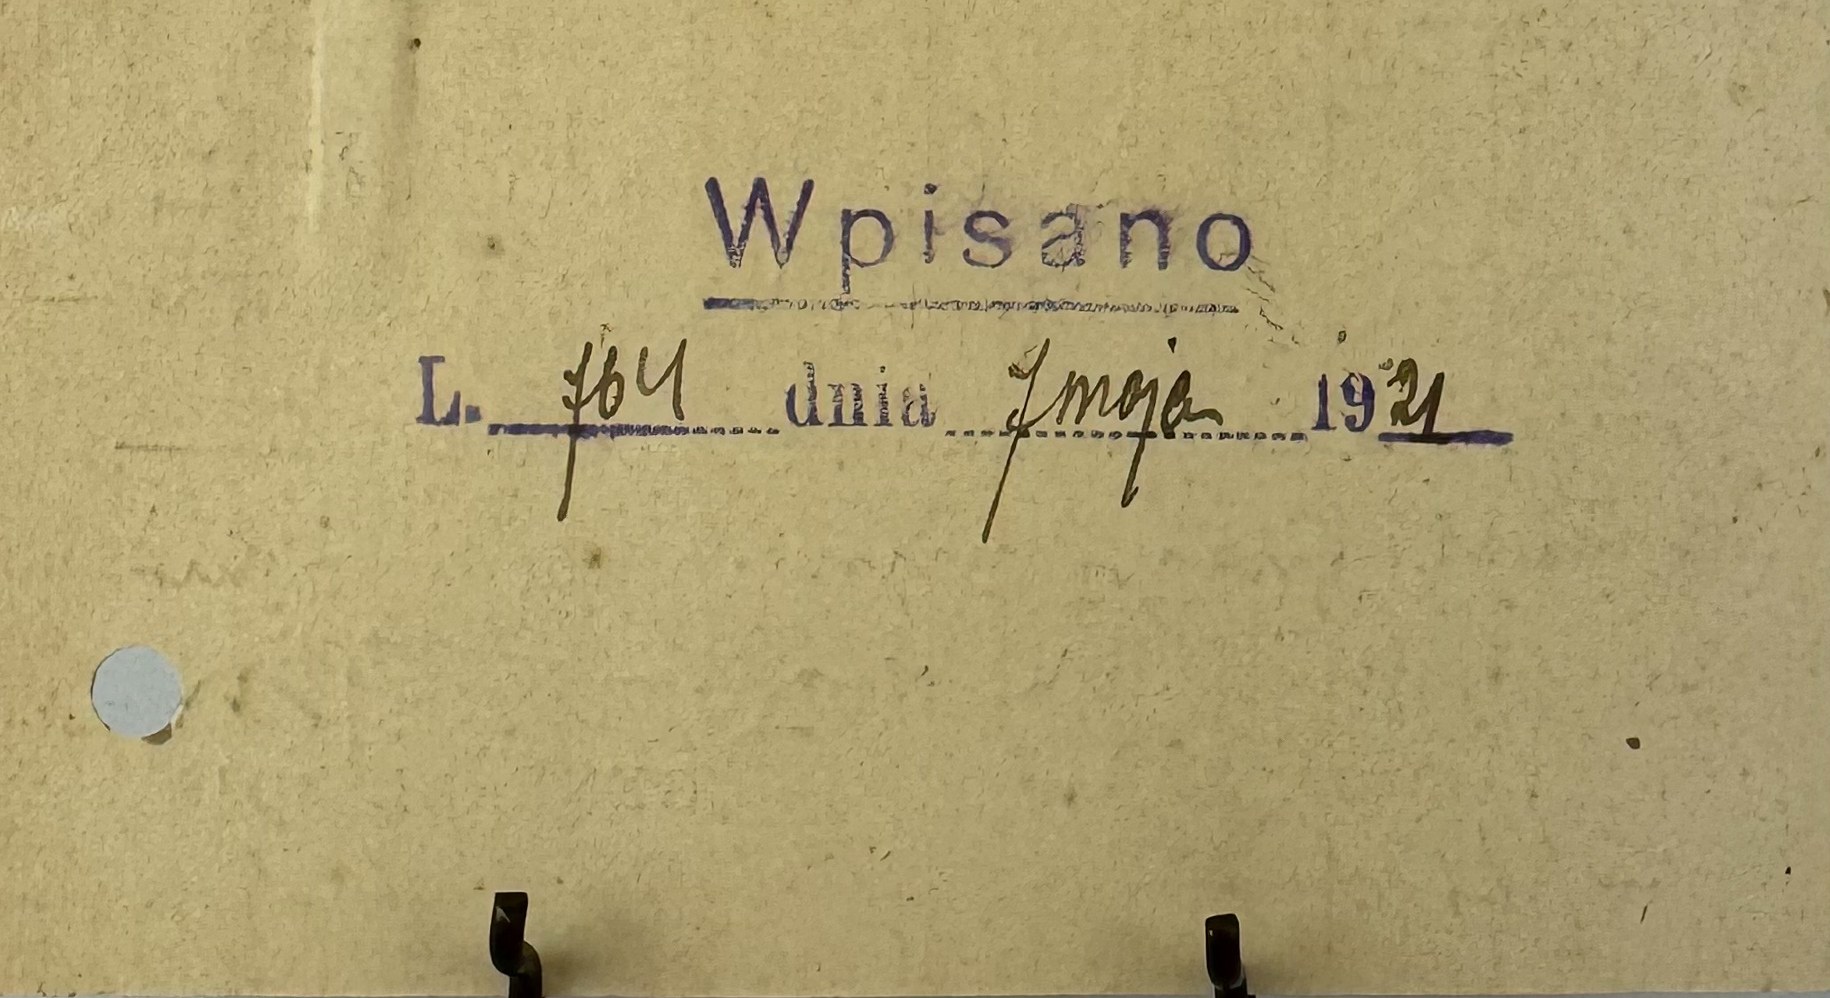 Wpisano
L. 764 dnia 7 maja 1921